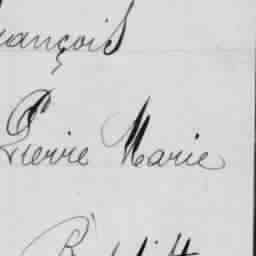 ançois
Pierre Marie